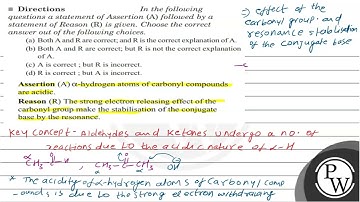 ■ Directions In the following
questions a statement of Assertion (A) followed by a
statement of Reason (R) is given. Choose the correct
answer out of the following choices.
(a) Both A and R are correct; and R is the correct explanation of A.
(b) Both A and R are correct; but R is not the correct explanation
of A.
(c) A is correct ; but R is incorrect.
(d) R is correct ; but A is incorrect.
Assertion (A) α-hydrogen atoms of carbonyl compounds
are acidic.
Reason (R) The strong electron releasing effect of the
carbonyl group make the stabilisation of the conjugate
base by the resonance.
⇒ effect of the
carbonyl group. and
resonance stabilisation
of the conjugate base
Key concept- Aldehydes and Ketones undergo a no. of
reactions due to the acidic nature of α-H
* The acidity of α-hydrogen atoms of Carbonyl comp
-ounds is due to the strong electron withdrawing
PW